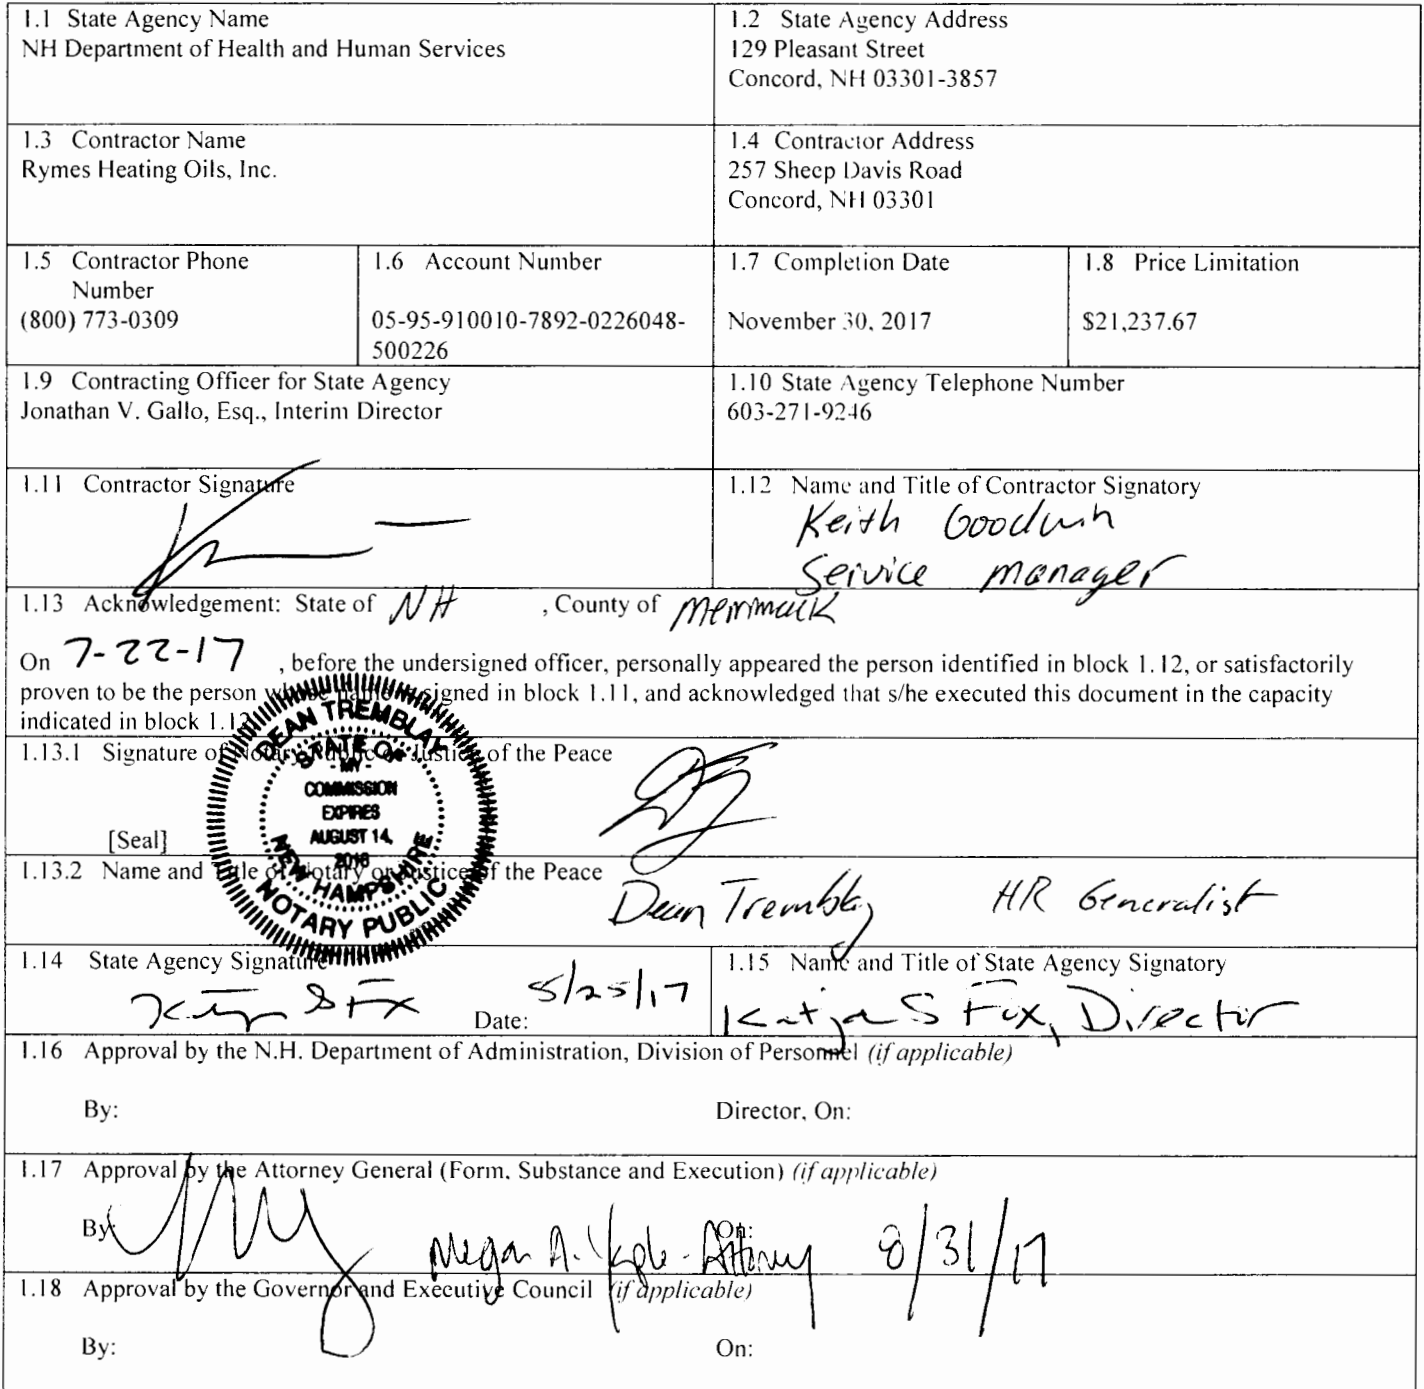 1.1 State Agency Name
NH Department of Health and Human Services
1.2 State Agency Address
129 Pleasant Street
Concord, NH 03301-3857
1.3 Contractor Name
Rymes Heating Oils, Inc.
1.4 Contractor Address
257 Sheep Davis Road
Concord, NH 03301
1.5 Contractor Phone
Number
(800) 773-0309
1.6 Account Number
05-95-910010-7892-0226048-
500226
1.7 Completion Date
November 30, 2017
1.8 Price Limitation
$21,237.67
1.9 Contracting Officer for State Agency
Jonathan V. Gallo, Esq., Interim Director
1.10 State Agency Telephone Number
603-271-9246
1.11 Contractor Signature
1.12 Name and Title of Contractor Signatory
Keith Goodwin
Service manager
1.13 Acknowledgement: State of NH , County of Merrimack
On 7-22-17 , before the undersigned officer, personally appeared the person identified in block 1.12, or satisfactorily
proven to be the person whose name is signed in block 1.11, and acknowledged that s/he executed this document in the capacity
indicated in block 1.12.
1.13.1 Signature of Notary Public or Justice of the Peace
[Seal]
DEAN TREMBLAY
STATE OF
- MY -
COMMISSION
EXPIRES
AUGUST 14,
2018
NEW HAMPSHIRE
NOTARY PUBLIC
1.13.2 Name and Title of Notary or Justice of the Peace
Dean Tremblay HR Generalist
1.14 State Agency Signature
Date: 5/25/17
1.15 Name and Title of State Agency Signatory
Katja S Fox, Director
1.16 Approval by the N.H. Department of Administration, Division of Personnel (if applicable)
By: Director, On:
1.17 Approval by the Attorney General (Form, Substance and Execution) (if applicable)
By: Megan A. Yaple - Attorney On: 8/31/17
1.18 Approval by the Governor and Executive Council (if applicable)
By: On: